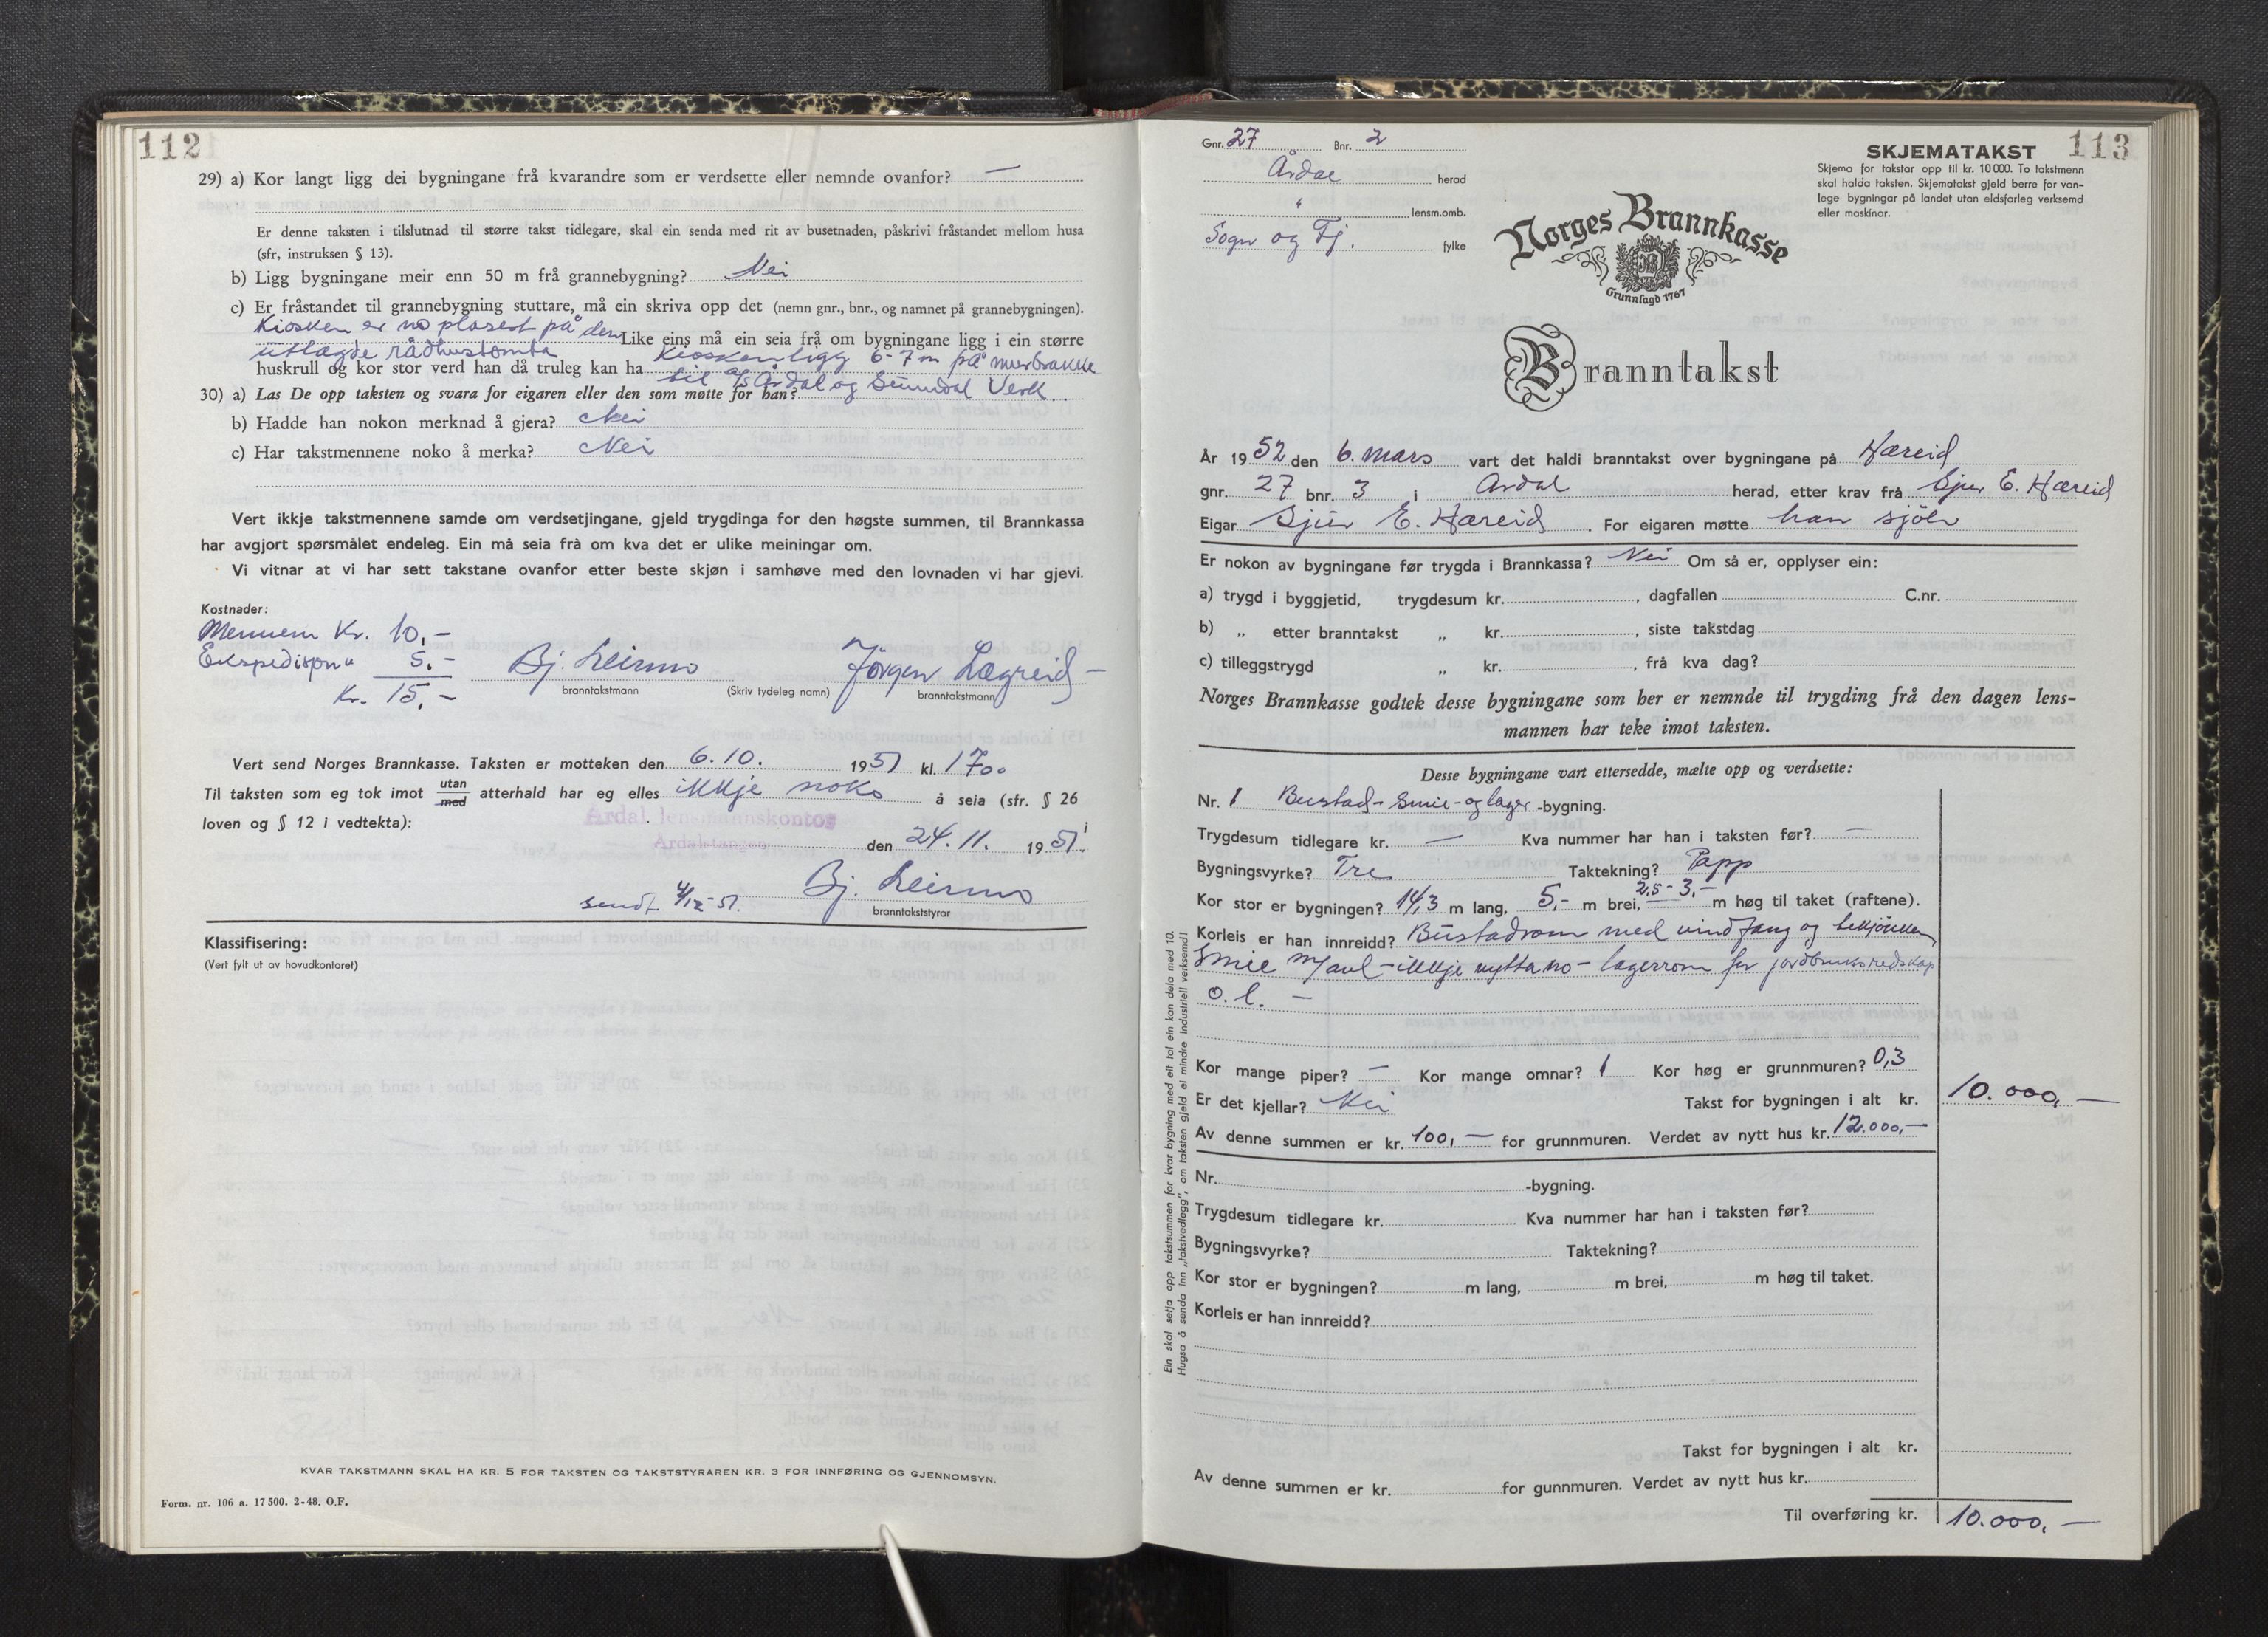 112
29) a) Kor langt ligg dei bygningane frå kvarandre som er verdsette eller nemnde ovanfor? —
Er denne taksten i tilslutnad til større takst tidlegare, skal ein senda med rit av busetnaden, påskrivi fråstandet mellom husa
(sfr, instruksen § 13).
b) Ligg bygningane meir enn 50 m frå grannebygning? Nei
c) Er fråstandet til grannebygning stuttare, må ein skriva opp det (nemn gnr., bnr., og namnet på grannebygningen).
Kiosken er no plasert på den Like eins må ein seia frå om bygningane ligg i ein større
utlagde rådhustomta
huskrull og kor stor verd han då truleg kan ha Kiosken ligg 6-7 m frå murbrakke
til a/s Årdal og Sunndal Verk.
30) a) Las De opp taksten og svara for eigaren eller den som møtte for han?
b) Hadde han nokon merknad å gjera? Nei
c) Har takstmennene noko å merka? Nei
Vert ikkje takstmennene samde om verdsetjingane, gjeld trygdinga for den høgste summen, til Brannkassa
har avgjort spørsmålet endeleg. Ein må seia frå om kva det er ulike meiningar om.
Vi vitnar at vi har sett takstane ovanfor etter beste skjøn i samhøve med den lovnaden vi har gjevi.
Kostnader:
Mennem Kr. 10,-
Ekspedisjon " 5,-
Kr. 15,-
Bj. Leirmo Jörgen Lægreid -
branntakstmann (Skriv tydeleg namn) branntakstmann
Vert send Norges Brannkasse. Taksten er motteken den 6.10. 1951 kl. 17oo
Til taksten som eg tok imot utan/med atterhald har eg elles ikkje noko å seia (sfr. § 26 i
loven og § 12 i vedtekta):
Årdal lensmannskontor
Årdalstangen den 24.11. 1951.
sendt 4/12-51. Bj. Leirmo
branntakststyrar
Klassifisering:
(Vert fylt ut av hovudkontoret)
KVAR TAKSTMANN SKAL HA KR. 5 FOR TAKSTEN OG TAKSTSTYRAREN KR. 3 FOR INNFØRING OG GJENNOMSYN.
Form. nr. 106 a. 17500. 2-48. O.F.
113
Gnr. 27 Bnr. 2
Årdal herad
" lensm.omb.
Sogn og Fj. fylke
SKJEMATAKST
Skjema for takstar opp til kr. 10000. To takstmenn
skal halda taksten. Skjematakst gjeld berre for van-
lege bygningar på landet utan eldsfarleg verksemd
eller maskinar.
Norges Brannkasse
Grunnlagd 1767
Branntakst
År 1952 den 6. mars vart det haldi branntakst over bygningane på Hæreid
gnr. 27 bnr. 3 i Årdal herad, etter krav frå Sjur E. Hæreid
Eigar Sjur E. Hæreid. For eigaren møtte han sjölv
Er nokon av bygningane før trygda i Brannkassa? Nei Om så er, opplyser ein:
a) trygd i byggjetid, trygdesum kr. , dagfallen C.nr.
b) „ etter branntakst „ kr. , siste takstdag
c) tilleggstrygd „ kr. , frå kva dag?
Norges Brannkasse godtek desse bygningane som her er nemnde til trygding frå den dagen lens-
mannen har teke imot taksten.
Desse bygningane vart ettersedde, mælte opp og verdsette:
Nr. 1 Bustad- Smie- og lager -bygning.
Trygdesum tidlegare kr. — Kva nummer har han i taksten før? —
Bygningsvyrke? Tre Taktekning? Papp
Kor stor er bygningen? 14,3 m lang, 5,- m brei, 2,5 - 3,- m høg til taket (raftene).
Korleis er han innreidd? Bustadrom med vindfang og tekjökken,
Smie m/avl - ikkje nytta no - lagerrom for jordbruksredskap
o. l. —
Kor mange piper? — Kor mange omnar? 1 Kor høg er grunnmuren? 0,3
Er det kjellar? Nei Takst for bygningen i alt kr. 10.000,-
Av denne summen er kr. 100,- for grunnmuren. Verdet av nytt hus kr. 12.000,-
Nr. -bygning.
Trygdesum tidlegare kr. Kva nummer har han i taksten før?
Bygningsvyrke? Taktekning?
Kor stor er bygningen? m lang, m brei, m høg til taket.
Korleis er han innreidd?
Takst for bygningen i alt kr.
Av denne summen er kr. for gunnmuren. Verdet av nytt hus kr.
Til overføring kr. 10.000,-
Ein skal setja opp takstsummen for kvar bygning med eit tal ein kan dela med 10.
Hugsa å senda inn „takstvedlegg", om taksten gjeld ei mindre industriell verksemd!